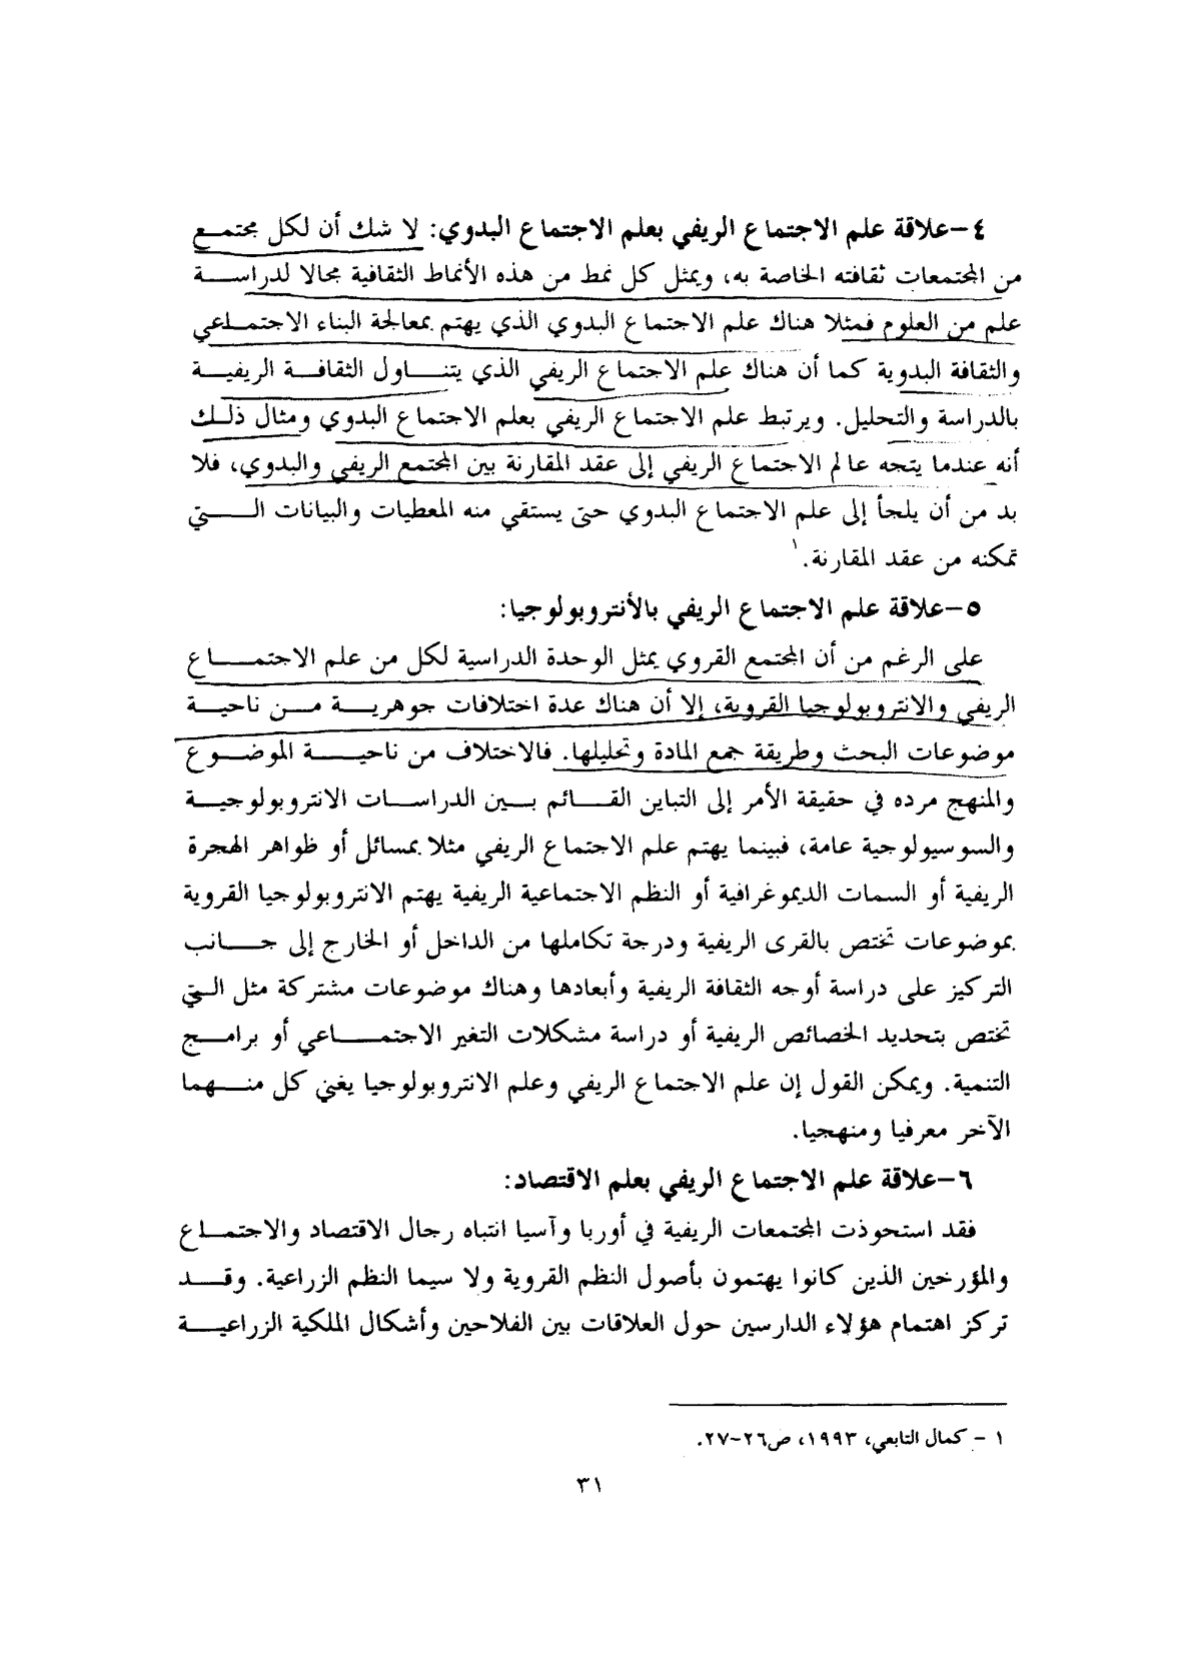 ٤-علاقة علم الاجتماع الريفي بعلم الاجتماع البدوي: لا شك أن لكل مجتمع
من المجتمعات ثقافته الخاصة به، ويمثل كل نمط من هذه الأنماط الثقافية مجالا لدراسة
علم من العلوم فمثلا هناك علم الاجتماع البدوي الذي يهتم بمعالجة البناء الاجتماعي
والثقافة البدوية كما أن هناك علم الاجتماع الريفي الذي يتناول الثقافة الريفية
بالدراسة والتحليل. ويرتبط علم الاجتماع الريفي بعلم الاجتماع البدوي ومثال ذلك
أنه عندما يتجه عالم الاجتماع الريفي إلى عقد المقارنة بين المجتمع الريفي والبدوي، فلا
بد من أن يلجأ إلى علم الاجتماع البدوي حتى يستقي منه المعطيات والبيانات التي
تمكنه من عقد المقارنة.١
٥-علاقة علم الاجتماع الريفي بالأنتروبولوجيا:
على الرغم من أن المجتمع القروي يمثل الوحدة الدراسية لكل من علم الاجتماع
الريفي والانتروبولوجيا القروية، إلا أن هناك عدة اختلافات جوهرية من ناحية
موضوعات البحث وطريقة جمع المادة وتحليلها. فالاختلاف من ناحية الموضوع
والمنهج مرده في حقيقة الأمر إلى التباين القائم بين الدراسات الانتروبولوجية
والسوسيولوجية عامة، فبينما يهتم علم الاجتماع الريفي مثلا بمسائل أو ظواهر الهجرة
الريفية أو السمات الديموغرافية أو النظم الاجتماعية الريفية يهتم الانتروبولوجيا القروية
بموضوعات تختص بالقرى الريفية ودرجة تكاملها من الداخل أو الخارج إلى جانب
التركيز على دراسة أوجه الثقافة الريفية وأبعادها وهناك موضوعات مشتركة مثل التي
تختص بتحديد الخصائص الريفية أو دراسة مشكلات التغير الاجتماعي أو برامج
التنمية. ويمكن القول إن علم الاجتماع الريفي وعلم الانتروبولوجيا يغني كل منهما
الآخر معرفيا ومنهجيا.
٦-علاقة علم الاجتماع الريفي بعلم الاقتصاد:
فقد استحوذت المجتمعات الريفية في أوربا وآسيا انتباه رجال الاقتصاد والاجتماع
والمؤرخين الذين كانوا يهتمون بأصول النظم القروية ولا سيما النظم الزراعية. وقد
تركز اهتمام هؤلاء الدارسين حول العلاقات بين الفلاحين وأشكال الملكية الزراعية
١ - كمال التابعي، ١٩٩٣، ص٢٦-٢٧.
٣١